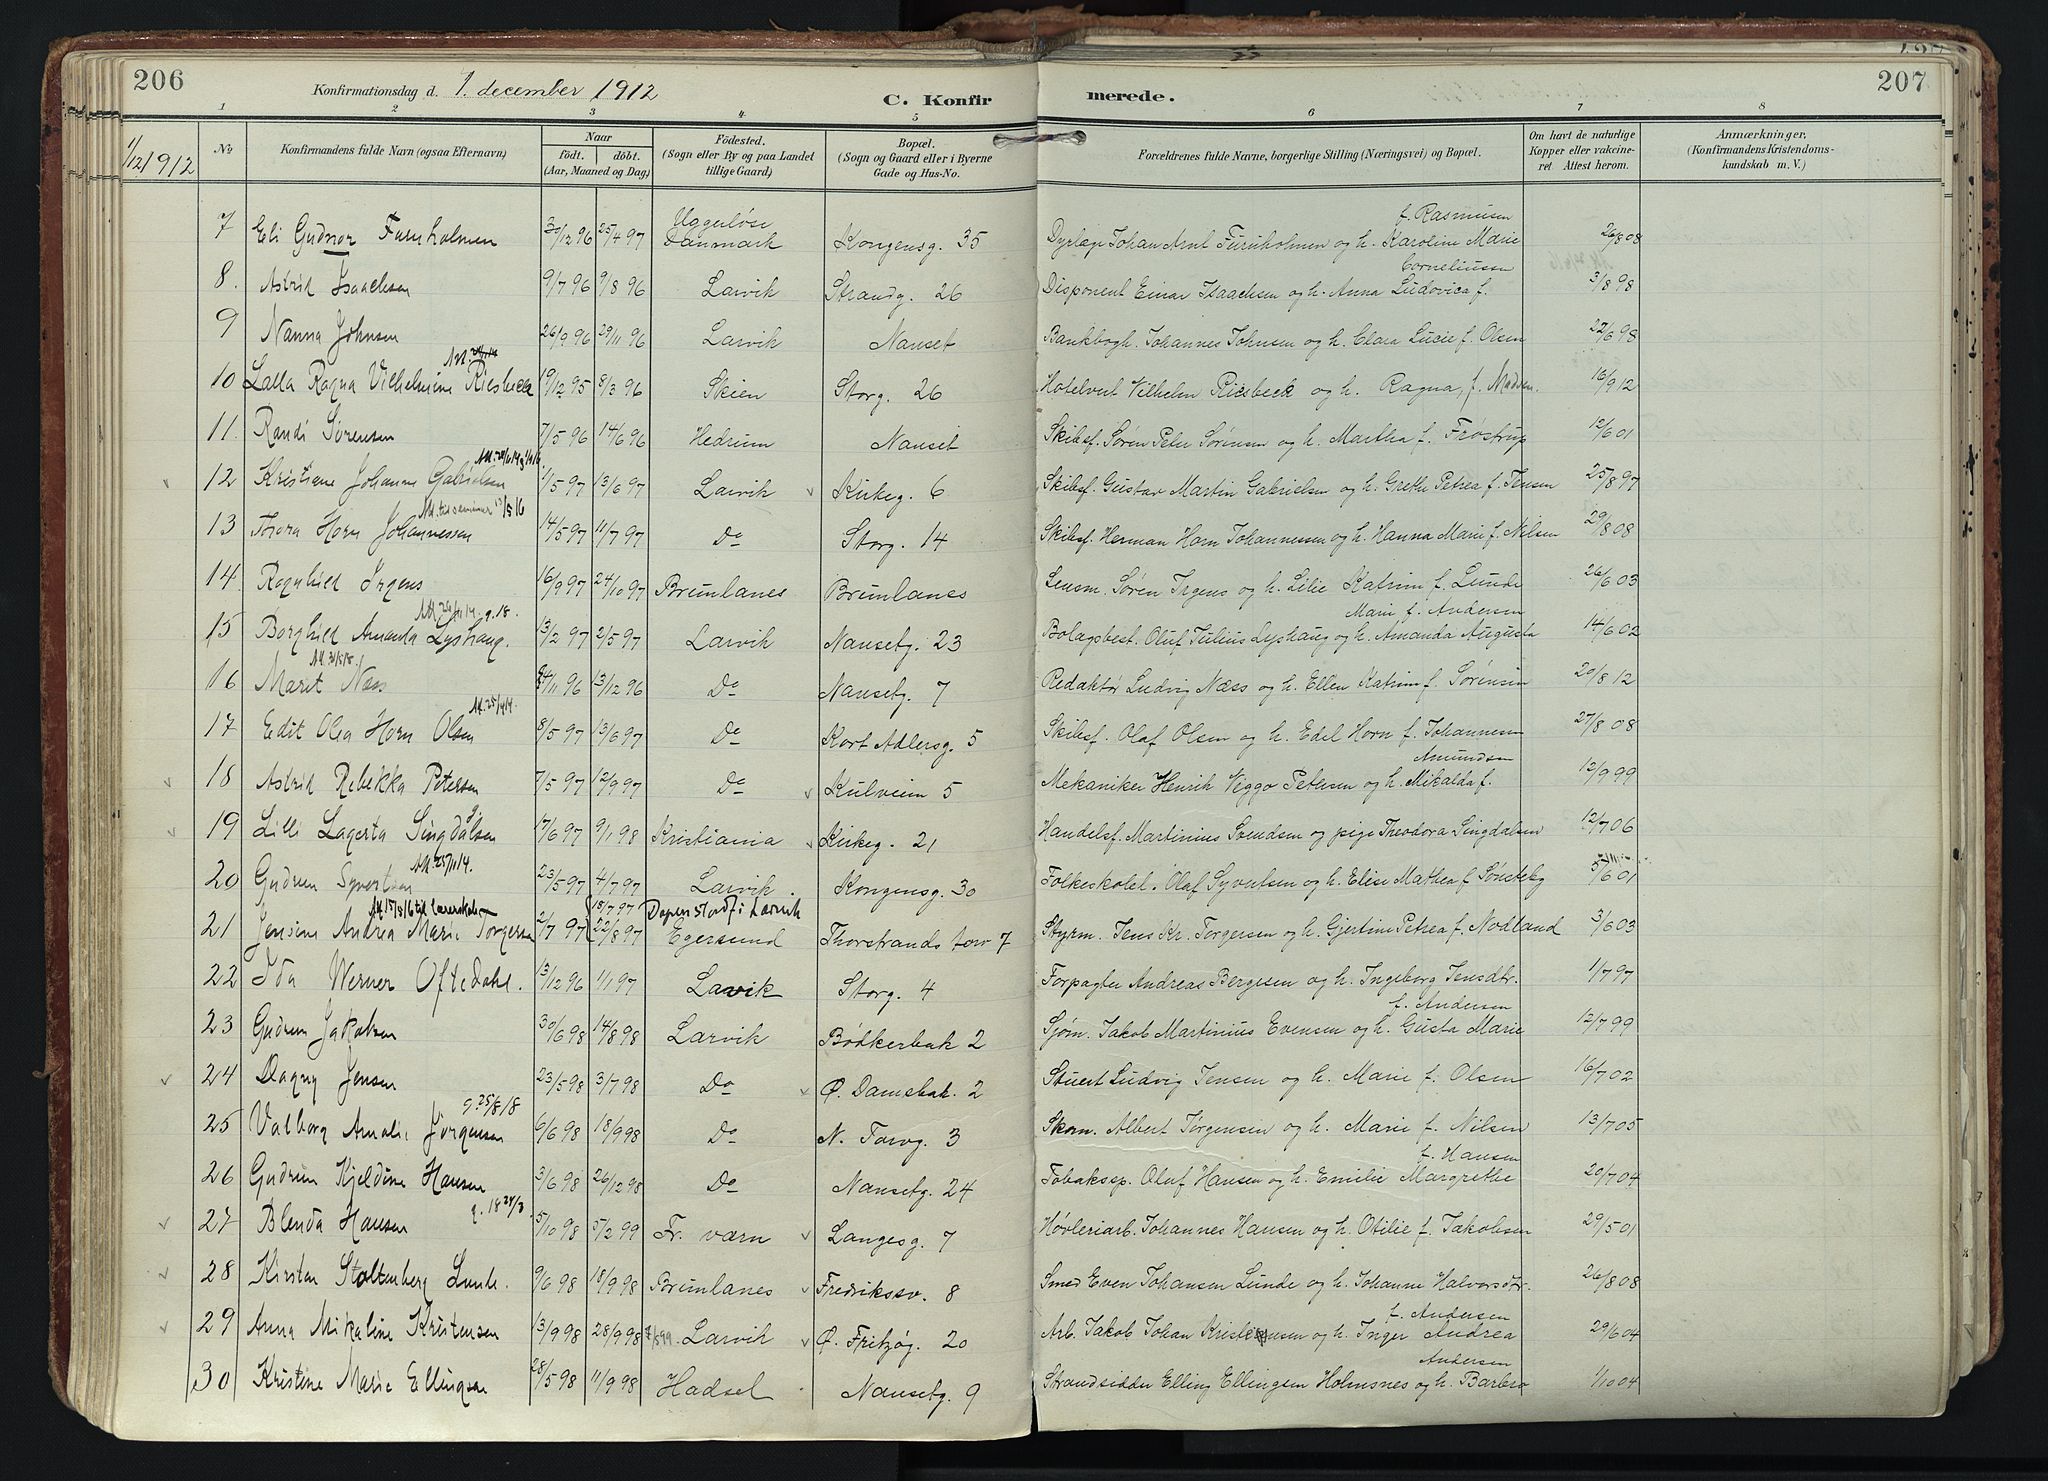 206
Konfirmationsdag d. 1. december 1912
C. Konfirmerede.
207
1 2 3 4 5 6 7 8
1/12 1912
No
Konfirmandens fulde Navn (ogsaa Efternavn)
Naar
födt. döbt.
(Aar, Maaned og Dag)
Födested.
(Sogn eller By og paa Landet
tillige Gaard)
Bopæl.
(Sogn og Gaard eller i Byerne
Gade og Hus-No.
Forældrenes fulde Navne, borgerlige Stilling (Næringsvei) og Bopæl.
Om havt de naturlige
Kopper eller vakcine-
ret Attest herom.
Anmærkninger.
(Konfirmandens Kristendoms-
kundskab m. V.)
Uggerløse f. Rasmusen
7 Eli Gudnor Furuholmen 30/12 96 25/4 97 Danmark Kongensg. 35 Dyrlæge Johan Arnt Furuholmen og h. Karoline Marie 26/8 08
Corneliussen
8. Astrid Isaachsen 9/7 96 9/8 96 Larvik Strandg. 26 Disponent Einar Isaachsen og h. Anna Ludovica f. 3/8 98
9 Nanna Johnsen 26/9 96 29/11 96 Larvik Nanset Bankbogh. Johannes Johnsen og h. Clara Lucie f. Olsen 27/6 98
10 Lalla Ragna Vilhelmine Riesbeck 19/12 95 8/3 96 Skien Storg. 26 Hotelvert Vilhelm Riesbeck og h. Ragna, f. Madsen. 16/9 12
11. Randi Sørensen 7/5 96 14/6 96 Hedrum Nanset Skibsf. Søren Peter Sørensen og h. Martha f. Frøstrup 12/6 01
12 Kristiane Johanne Gabrielsen 1/5 97 13/6 97 Larvik Kirkeg. 6 Skibsf. Gustav Martin Gabrielsen og h. Grethe Petrea f. Jensen 25/8 97
13 Thora Horn Johannessen 14/5 97 11/7 97 Do Storg. 14 Skibsf. Herman Horn Johannessen og h. Hanna Marie f. Nilsen 29/8 08
14. Ragnhild Irgens 16/9 97 24/10 97 Brunlanes Brunlanes Lensm. Søren Irgens og h. Lilie Katrine f. Lunde 26/6 03
g. 18. Marie f. Andersen
15 Borghild Amanda Lyshaug. 13/2 97 2/5 97 Larvik Nansetg. 23 Bolagsbest. Oluf Julius Lyshaug og h. Amanda Augusta 14/6 02
16 Marit Næss 24/11 96 13/12 96 Do Nansetg. 7 Redaktør Ludvig Næss og h. Ellen Katrine f. Sørensen 20/8 12
17 Edit Olea Horn Olsen 8/5 97 13/6 97 Do Kort Adlersg. 5 Skibsf. Olaf Olsen og h. Edel Horn f. Johannesen 27/8 08
Amundsen
18 Astrid Rebekka Petersen 7/5 97 12/9 97 Do Kulveien 5 Mekaniker Henrik Viggo Petersen og h. Mikalda f. 12/9 99
19 Lilli Lagerta Singdalsen 17/6 97 9/1 98 Kristiania Kirkeg. 21 Handelsf. Martinius Svendsen og pige Theodora Singdalsen 12/7 06
20 Gudrun Syvertsen 23/5 97 4/7 97 Larvik. Kongensg. 30 Folkeskolel. Olaf Syvertsen og h. Elise Mathea f Sønsteby 5/6 01
til lærerskolen 18/7 97
21 Jensine Andrea Marie Torgersen 2/7 97 22/8 97 Egersund Thorstrands torv 7 Styrm. Jens Kr. Torgersen og h. Gjertine Petrea f. Nodland 3/6 03
22 Ida Werner Oftedahl. 13/12 96 1/1 97 Larvik Storg. 4 Forpagter Andreas Bergesen og h. Ingeborg Jensdtr. 1/7 97
f. Andersen
23 Gudrun Jakobsen 30/6 98 14/8 98 Larvik Bødkerbak 2 Sjøm. Jakob Martinius Evensen og h. Gusta Marie 12/7 99
24 Dagny Jensen 23/5 98 3/7 98 Do Ø. Damebak. 2 Stuert Ludvig Jensen og h. Marie f. Olsen 16/7 02
g. 25/8 18
25 Valborg Amalie Jørgensen 6/6 98 18/9 98 Do N. Torvg. 3 Skom. Albert Jørgensen og h. Marie f. Nilsen 13/7 05
f. Hansen
26 Gudrun Kjeldine Hansen 3/6 98 26/12 98 Do Nansetg. 24 Tobakssp. Oluf Hansen og h. Emilie Margrethe 20/7 04
27 Blenda Hansen 5/10 98 5/2 99 Fr. værn Langesg. 7 Høvleriarb. Johannes Hansen og h. Otilie f. Jakobsen 29/5 01
28 Kirsten Stoltenberg Lunde. 9/6 98 18/9 98 Brunlanes Fredriksv. 8 Smed Even Johansen Lunde og h. Johanne Halvorsdtr. 26/8 08
f. Andersen
29 Anna Mikaline Kristensen 13/9 98 28/9 98 Larvik Ø. Fritzøg. 20 Arb. Jakob Johan Kristensen og h. Inger Andrea 29/6 04
Andersen
30 Kristine Marie Ellingsen 28/5 98 11/9 98 Hadsel Nansetg. 9 Strandsidder Elling Ellingsen Holmsnes og h. Barbro 1/10 04